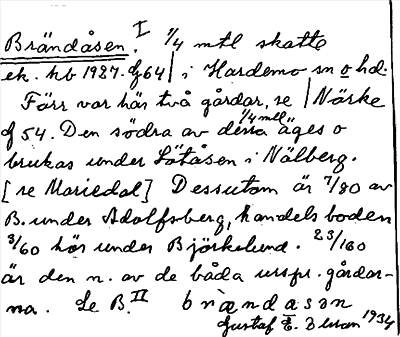 Brändåsen. I 1/4 mtl skatte
ek. kb 1927. G 64 | i Hardemo sn o hd.
Förr var här två gårdar, se | Närke
G 54. Den södra av dessa 1/4 mtll äges o
brukas under Lötåsen i Nälberg.
[se Mariedal] Dessutom är 7/80 av
B. under Adolfsberg, handelsboden
3/60 hör under Björkelund. 23/160
är den n. av de båda urspr. gårdar-
na. Se B. II brændasən
Gustaf E. 1934